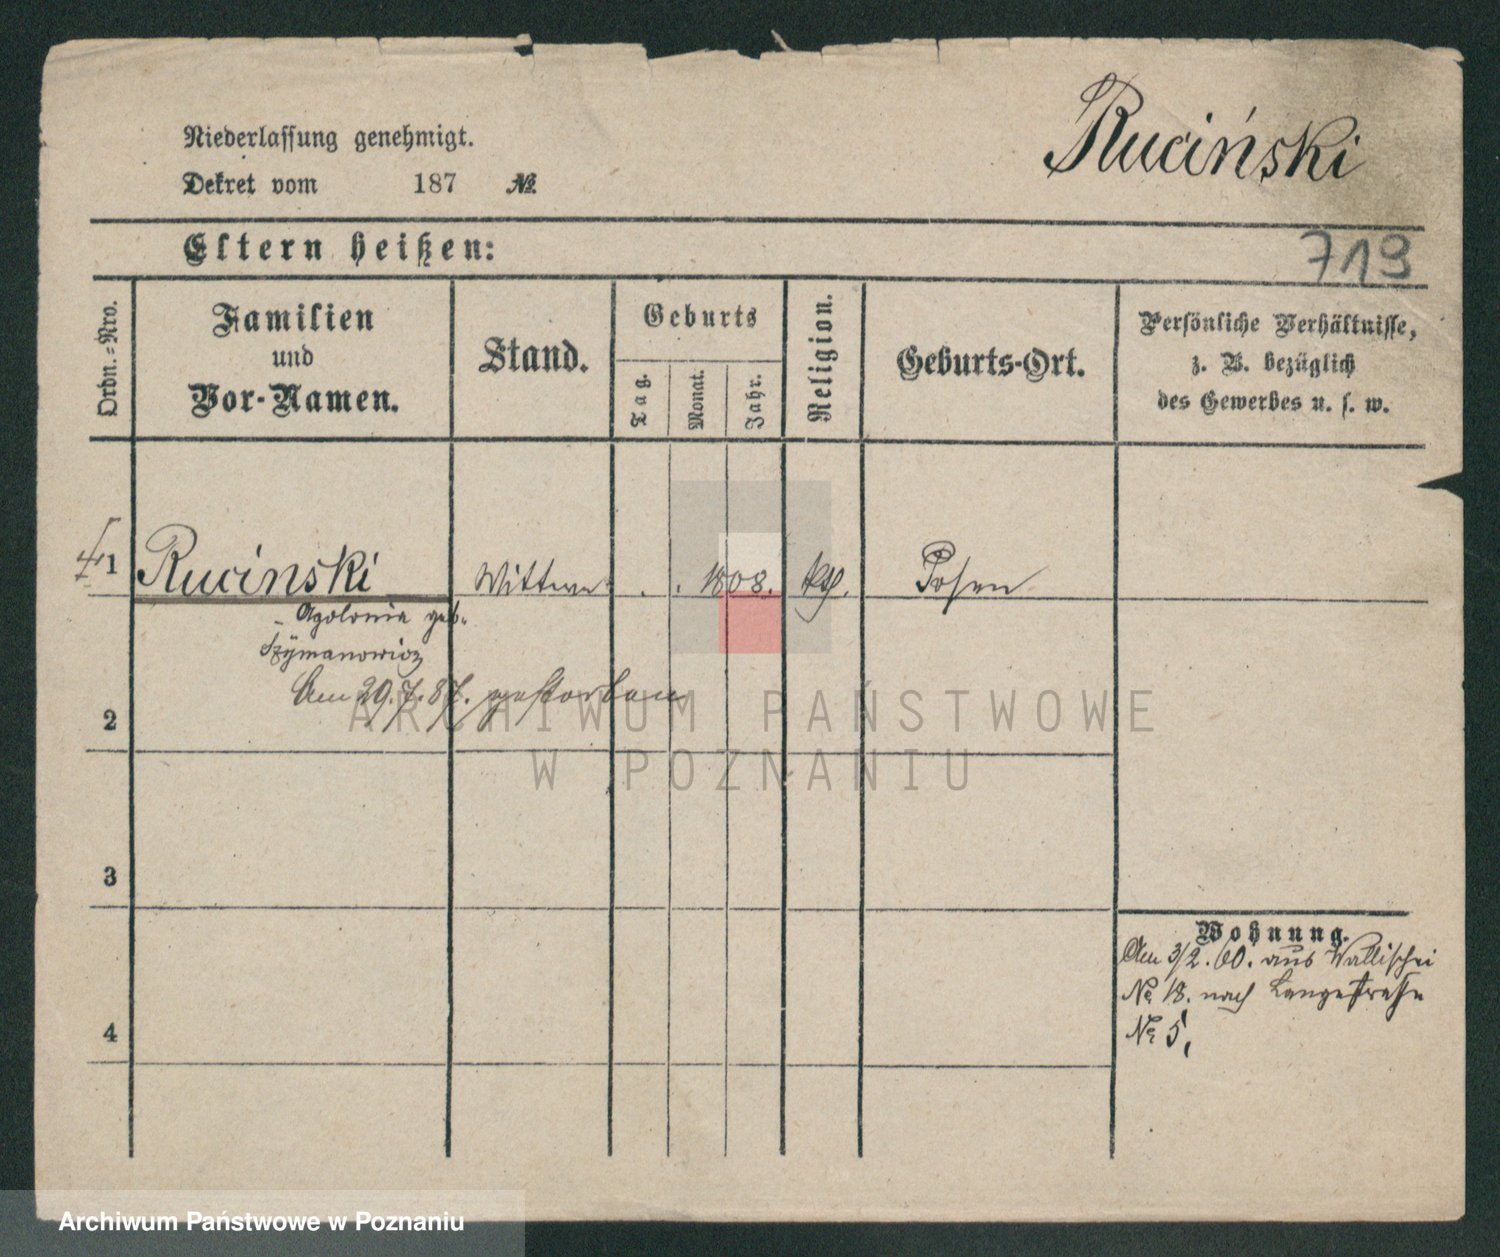 Ruciński
Niederlassung genehmigt.
Dekret vom 187 №
719
Eltern heißen:
Ordn.=Nro.
Familien
und
Vor-Namen.
Stand.
Geburts
Tag.
Monat.
Jahr.
Religion.
Geburts-Ort.
Persönliche Verhältnisse,
z. B. bezüglich
des Gewerbes u. s. w.
1 Rucinski Wittwe . . 1808. kth. Posen
Apolonia geb.
Szymanowicz
Am 20.7.87. gestorben
2
3
4
Wohnung.
Am 3/2. 60. aus Wallischei
No 18. nach Langestrasse
No 5,
ARCHIWUM PAŃSTWOWE
W POZNANIU
Archiwum Państwowe w Poznaniu